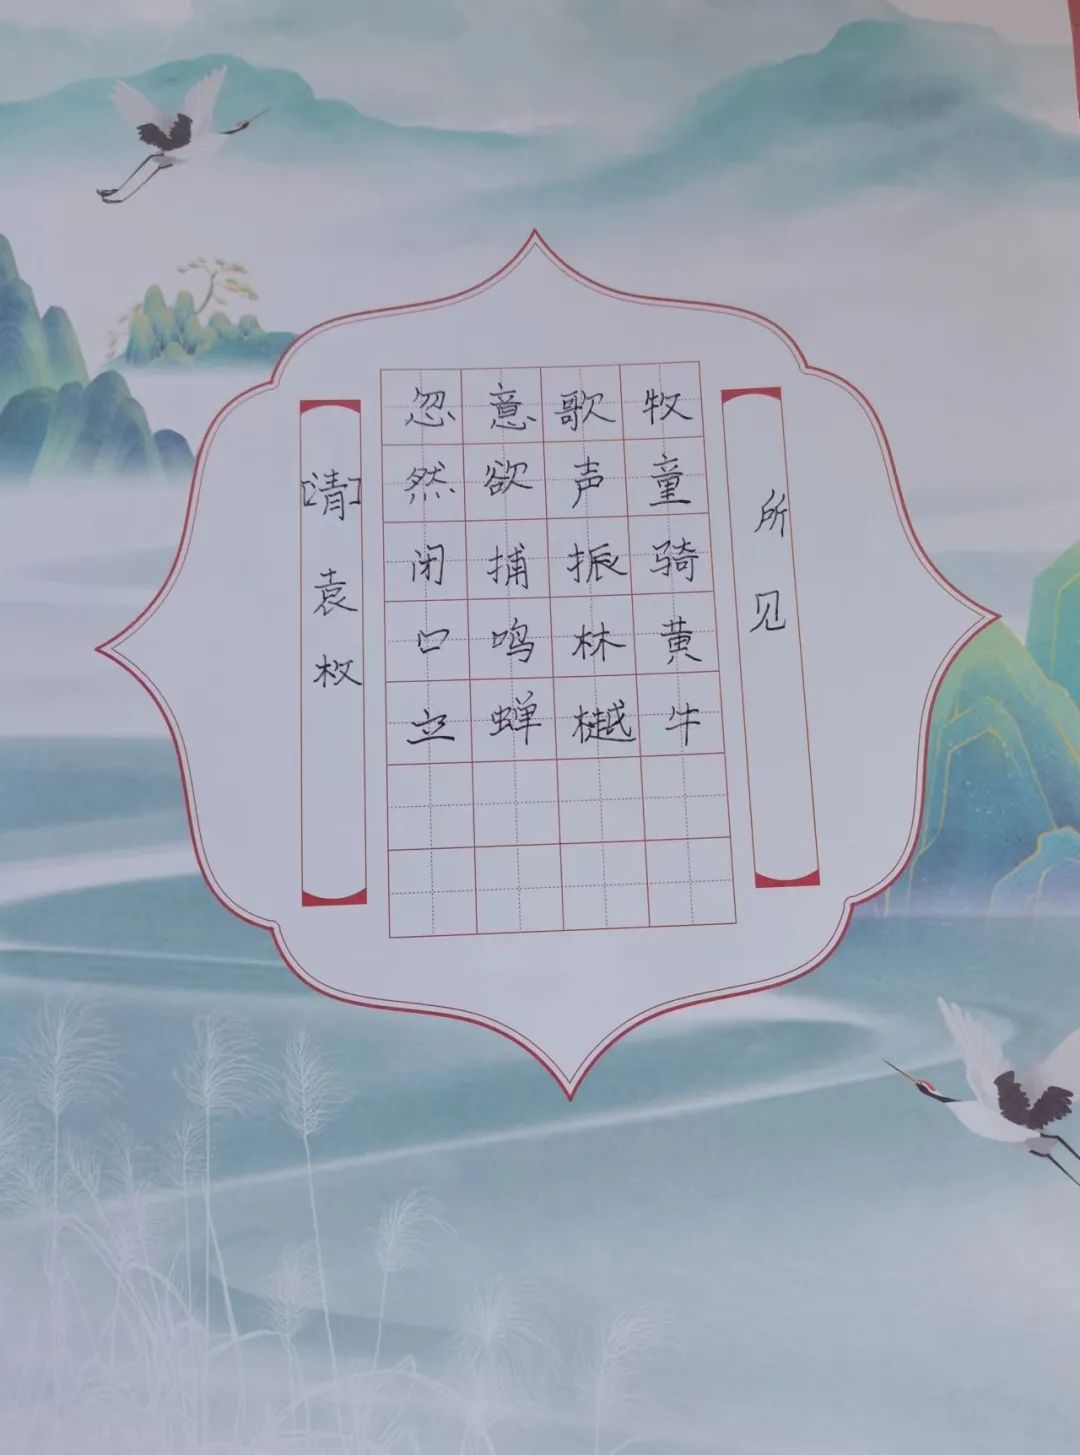 所见
牧童骑黄牛
歌声振林樾
意欲捕鸣蝉
忽然闭口立
[清]袁枚